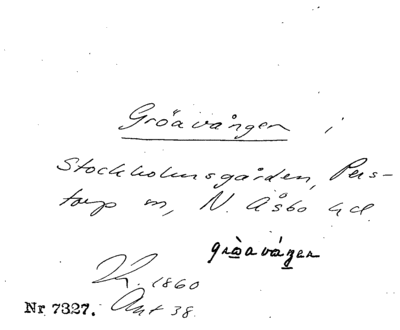 Gröavången i
Stockholmsgården, Pers-
torp sn, N. Åsbo hd.
gròaváŋen
1860
Nr 7327. Ant 38.